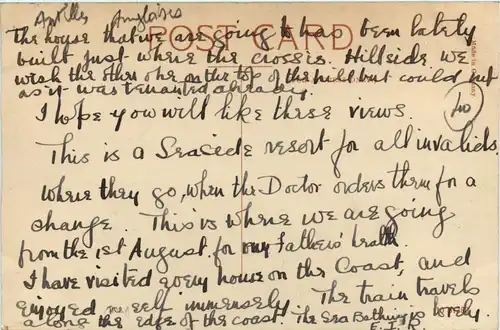 Antilles Anglaises
POST CARD
The house that we are going to has been lately
built just where the cross is. Hillside, we
wish the other one on the top of the hill but could not
as it was tenanted already.
Made in
40
I hope you will like these views.
This is a Seacide resort for all invalids
where they go, when the Doctor orders them for a
change. This is where we are going
from the 1st August for my Father's health.
I have visited every house on the Coast, and
enjoyed myself immensely. The train travels
along the edge of the coast. The Sea Bathing is lovely.